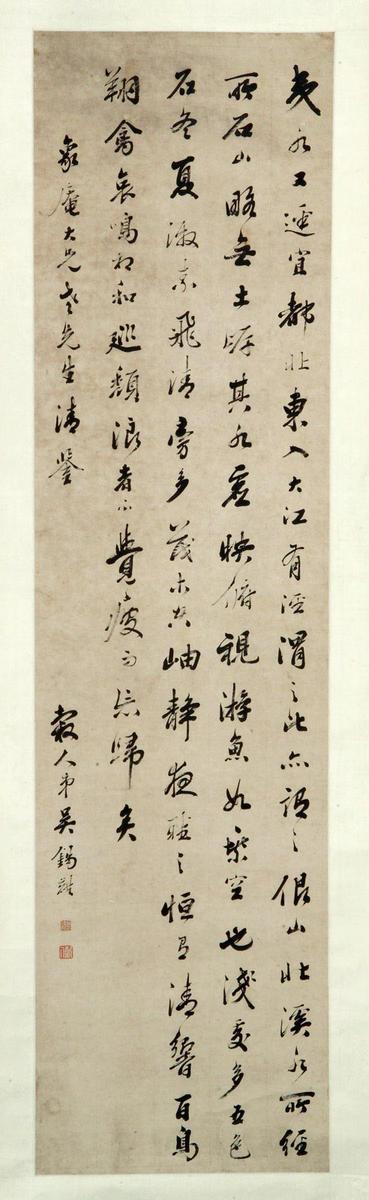 夷水又逕宜都北東入大江有涇渭之比亦謂之佷山北溪水所經
皆石山略無土岸其水虛映俯視游魚如乘空也淺處多五色
石冬夏激素飛清旁多茂木空岫靜夜聽之恒有清響百鳥
翔禽哀鳴相和巡頹浪者不覺疲而忘歸矣
象庵大兄老先生清鑒
穀人弟吳錫麒